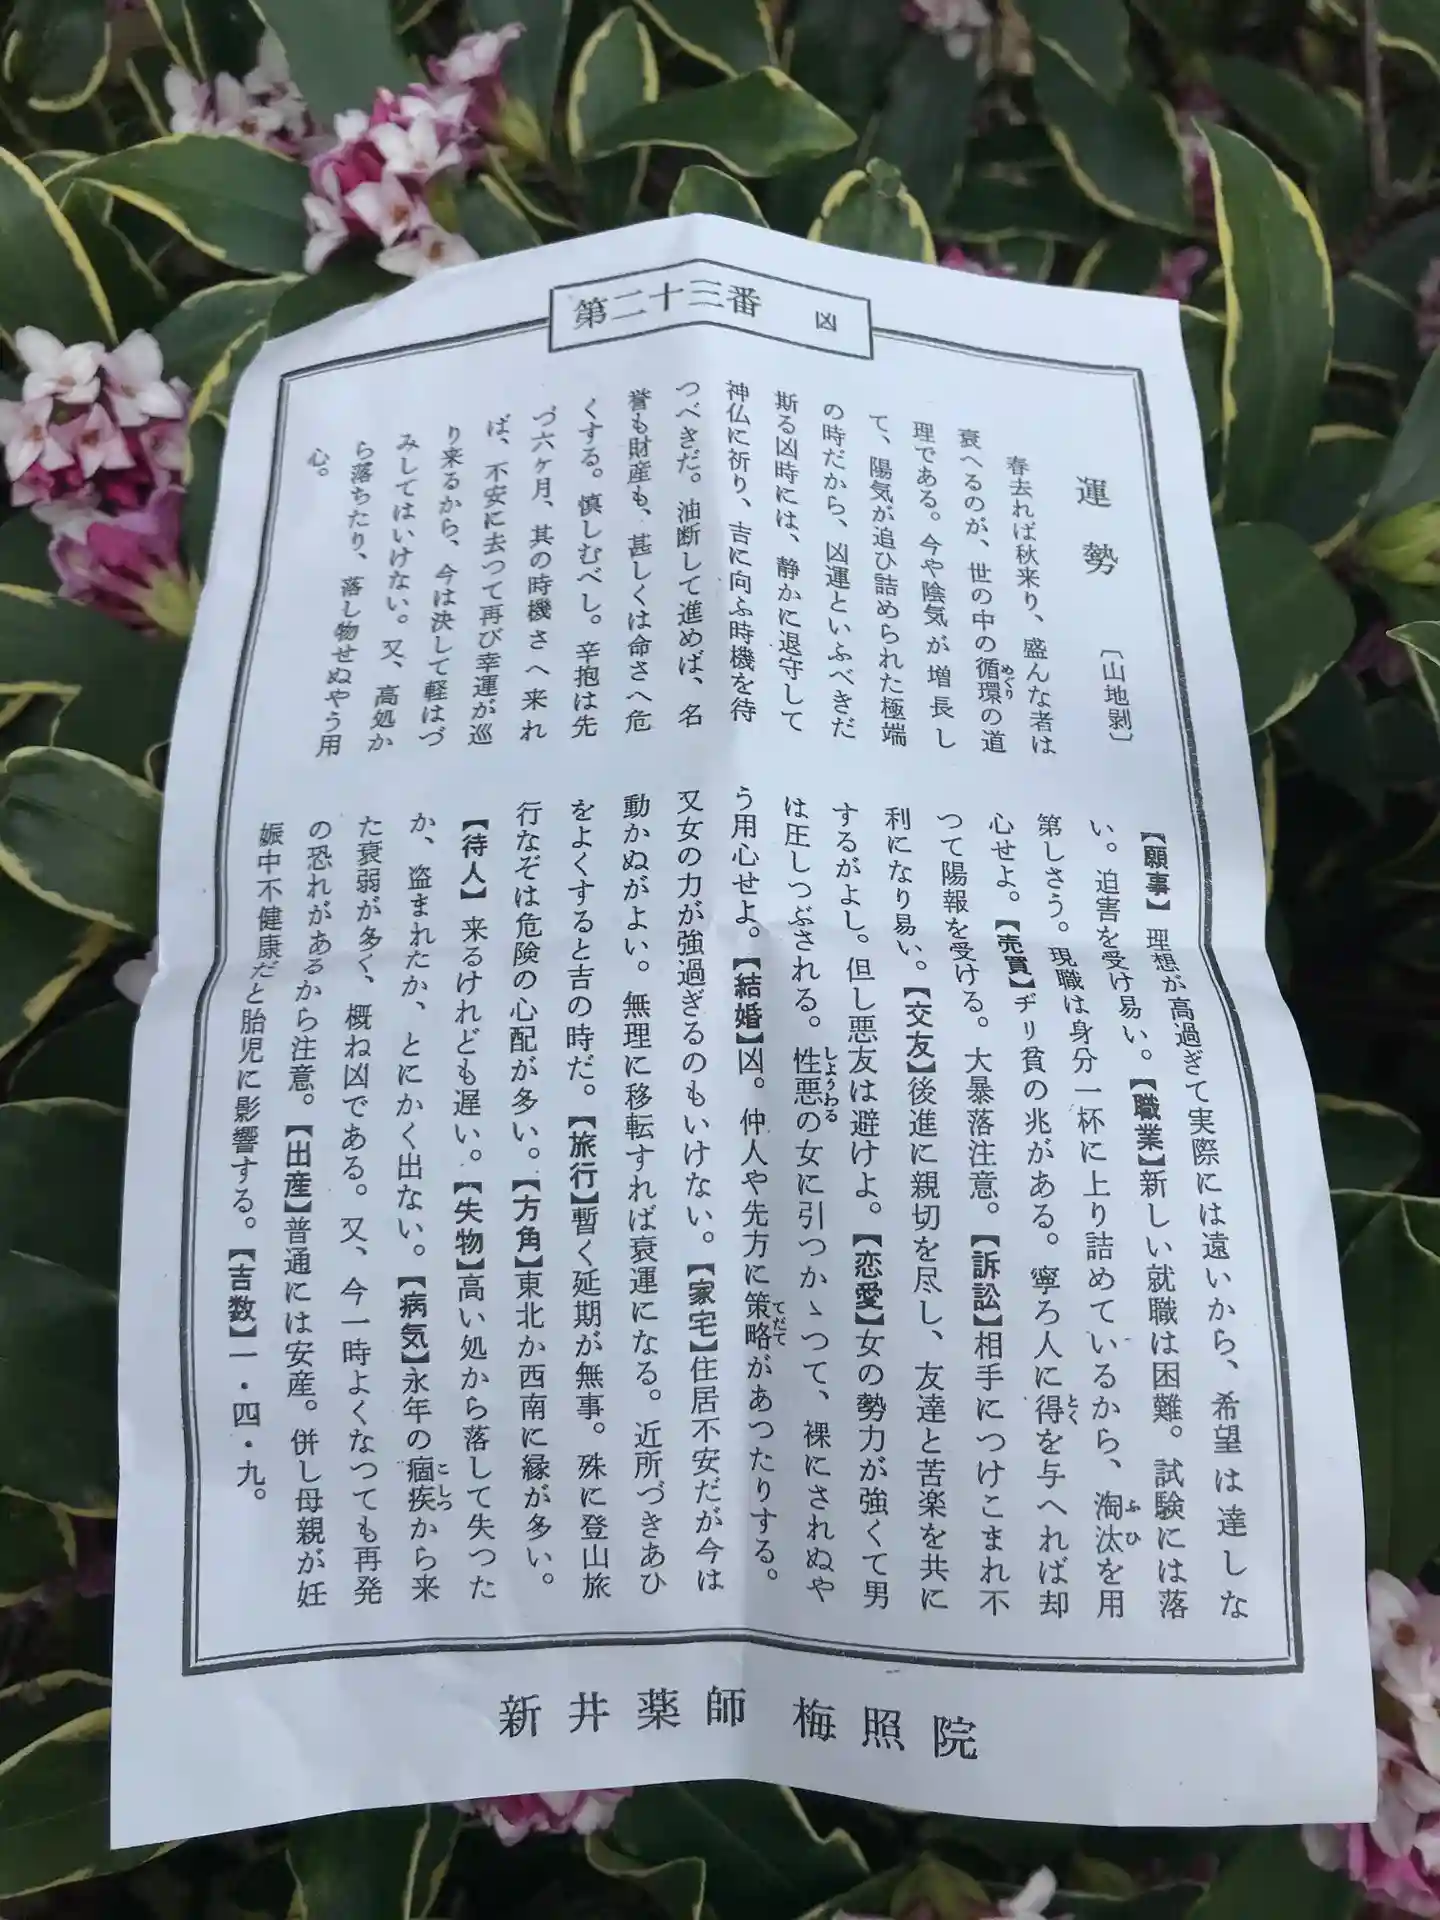 第二十三番 凶
運勢
〔山地剝〕
春去れば秋来り、盛んな者は
衰へるのが、世の中の循環の道
めぐり
理である。今や陰気が増長し
て、陽気が追ひ詰められた極端
の時だから、凶運といふべきだ
斯る凶時には、静かに退守して
神仏に祈り、吉に向ふ時機を待
つべきだ。油断して進めば、名
誉も財産も、甚しくは命さへ危
くする。慎しむべし。辛抱は先
づ六ヶ月、其の時機さへ来れ
ば、不安に去つて再び幸運が巡
り来るから、今は決して軽はづ
みしてはいけない。又、高処か
ら落ちたり、落し物せぬやう用
心。
【願事】理想が高過ぎて実際には遠いから、希望は達しな
い。迫害を受け易い。【職業】新しい就職は困難。試験には落
第しさう。現職は身分一杯に上り詰めているから、淘汰を用
ふひ
心せよ。【売買】ヂリ貧の兆がある。寧ろ人に得を与へれば却
とく
つて陽報を受ける。大暴落注意。【訴訟】相手につけこまれ不
利になり易い。【交友】後進に親切を尽し、友達と苦楽を共に
するがよし。但し悪友は避けよ。【恋愛】女の勢力が強くて男
は圧しつぶされる。性悪の女に引つかゝつて、裸にされぬや
しようわる
う用心せよ。【結婚】凶。仲人や先方に策略があつたりする。
てだて
又女の力が強過ぎるのもいけない。【家宅】住居不安だが今は
動かぬがよい。無理に移転すれば衰運になる。近所づきあひ
をよくすると吉の時だ。【旅行】暫く延期が無事。殊に登山旅
行なぞは危険の心配が多い。【方角】東北か西南に縁が多い。
【待人】来るけれども遅い。【失物】高い処から落して失つた
か、盗まれたか、とにかく出ない。【病気】永年の痼疾から来
こしつ
た衰弱が多く、概ね凶である。又、今一時よくなつても再発
の恐れがあるから注意。【出産】普通には安産。併し母親が妊
娠中不健康だと胎児に影響する。【吉数】一・四・九。
新井薬師 梅照院